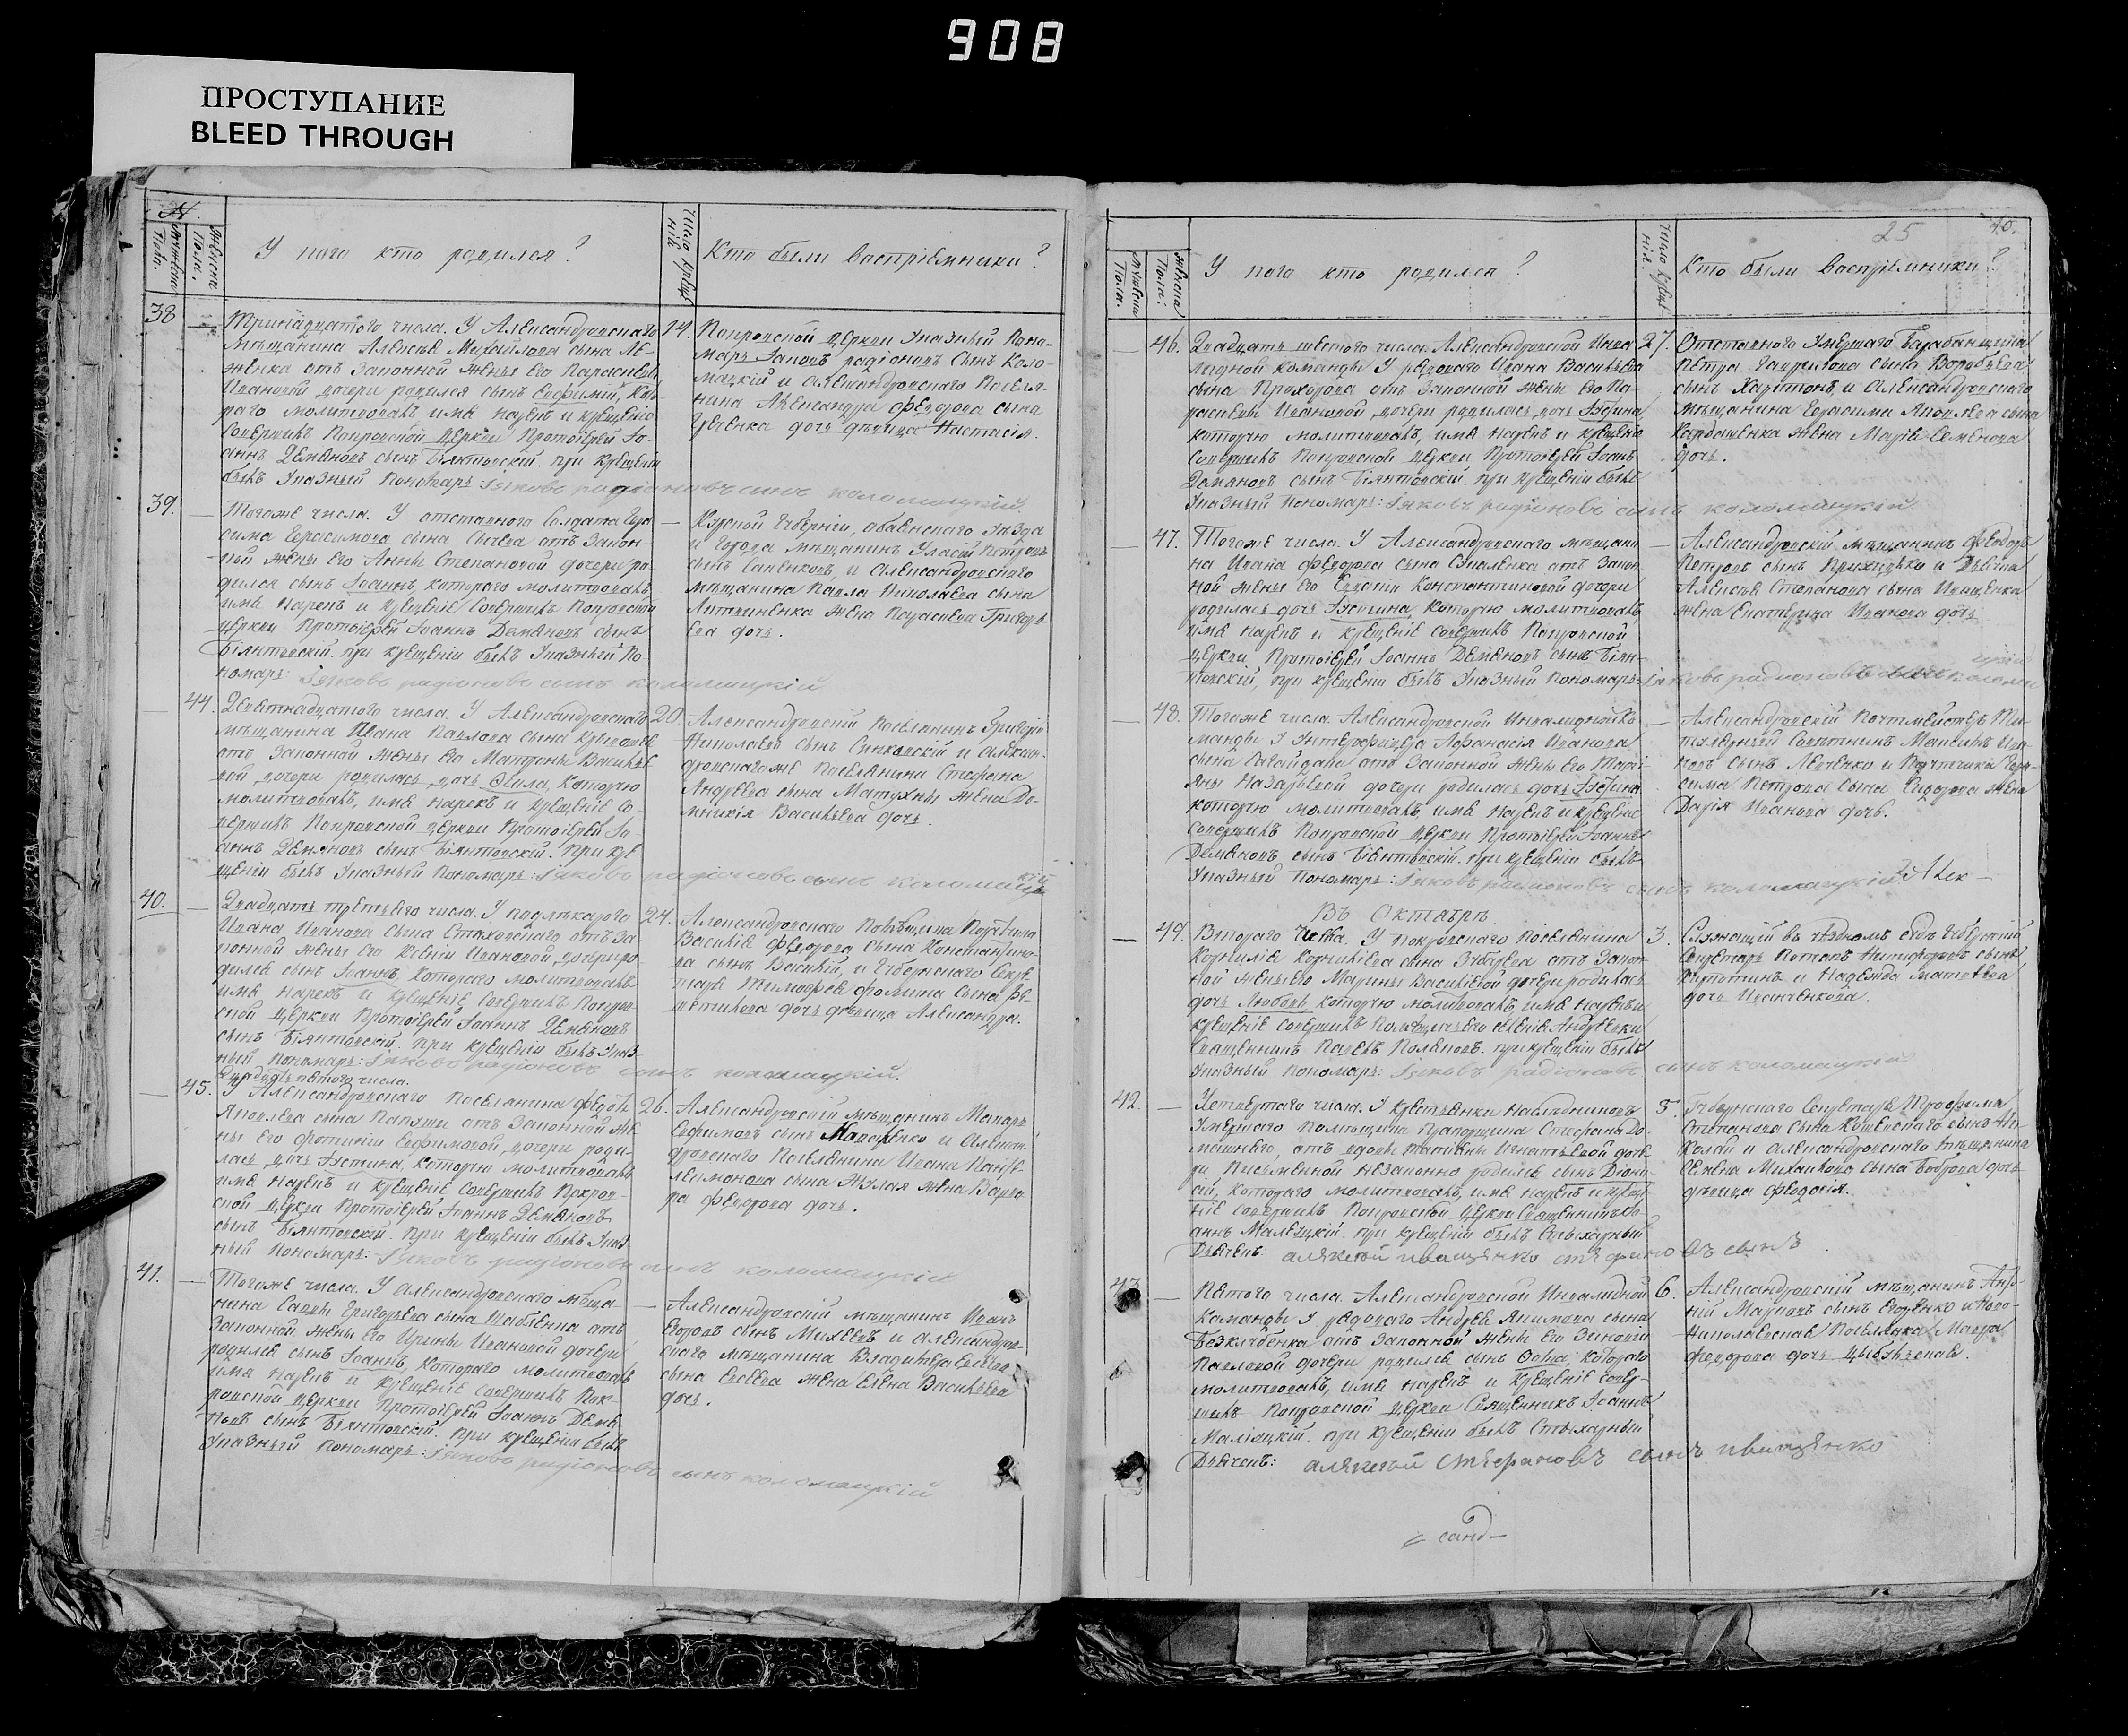 908
ПРОСТУПАНИЕ
BLEED THROUGH
№.
Мужеска Пола.
Женска Пола.
У кого кто родился?
Число крещенія
Кто были воспріемники?
38
Тринадцатого числа. У Александровскаго
мѣщанина Алексѣя Михайлова сына
женка отъ Законной жены его Парасковіи
Ивановой дочери родился сынъ Евфимій, Кото
раго молитвовалъ имя нарекъ и крещеніе
Совершилъ Покровской Церкви Протоіерей Іо-
аннъ Деменовъ сынъ Бѣлятовскій. при крещеніи
былъ Указный Пономарь Іяковъ радіоновъ сынъ коломацкій.
14.
Покровской Церкви Указный Поно-
марь Іаковъ радіоновъ сынъ Коло-
мацкій и Александровскаго Поселя-
нина Александра Федорова сына
дочь дѣвица Настасія.
39.
Тогоже числа. У отставного Солдата Гера
сима Герасимова сына Сычева отъ Закон-
ной жены его Анны Степановой дочери ро-
дился сынъ Іоаннъ, которого молитвовалъ
имя нарекъ и крещеніе Совершилъ Покровской
Церкви Протоіерей Іоаннъ Деменовъ сынъ
Бѣлятовскій. при крещеніи былъ Указный По-
номарь: Іяковъ радіоновъ сынъ коломацкій
Курской Губерніи, Обаенскаго уѣзда
и города мѣщанинъ Уласій Петровъ
сынъ и Александровского
мѣщанина Павла Николаева сына
Литвиненка жена Парасковія Григорь
ева дочь.
44.
Девятнадцатого числа. У Александровского
мѣщанина Ивана Павлова сына
отъ Законной жены его Матроны Василье
вой дочери родилась дочь Ѳекла, которую
молитвовалъ, имя нарекъ и крещеніе Со-
вершилъ Покровской Церкви Протоіерей Іо-
аннъ Деменовъ сынъ Бѣлятовскій. При кре
щеніи былъ Указный Пономарь: Іяковъ радіоновъ сынъ коломацкій
20.
Александровскій поселянинъ Григорій
Николаевъ сынъ и Алексан-
дровскагоже поселянина Стефана
Андреева сына Матухны жена До-
мникія Васильева дочь.
40.
Двадцать третьего числа. У подлѣкарого
Ивана Иванова сына Стаховского отъ За-
конной жены его Ксеніи Ивановой дочери ро-
дился сынъ Іоаннъ, Которого молитвовалъ
имя нарекъ и крещеніе Совершилъ Покров-
ской Церкви Протоіерей Іоаннъ Деменовъ
сынъ Бѣлятовскій. при крещеніи былъ Указ-
ный Пономарь: Іяковъ радіоновъ сынъ коломацкій.
24.
Александровского Повѣта
Василія Федорова сына Константино-
ва сынъ Василій, и Губернского Секре
таря Тимофея Фомина сына Ре-
шетилова дочь дѣвица Александра.
Двадцать пятого числа.
45.
У Александровского поселянина Федота
Яковлева сына Папуши отъ Законной же
ны его Фотиніи Евфимовой дочери роди-
лась дочь Іустина, которую молитвовалъ
имя нарекъ и крещеніе Совершилъ Покров-
ской Церкви Протоіерей Іоаннъ Деменовъ
сынъ Бѣлятовскій. При крещеніи былъ Указ
ный Пономарь: Іяковъ радіоновъ сынъ коломацкій
26.
Александровскій мѣщанинъ Макаръ
Евфимовъ сынъ Макаренко и Алексан-
дровского поселянина Ивана Пант-
елимонова сына жена Варва
ра Федорова дочь.
41.
Тогоже числа. У Александровского мѣща-
нина Саввы Григорьева сына отъ
Законной жены его Ирины Ивановой дочери
родился сынъ Іоаннъ, Которого молитвовалъ
имя нарекъ и крещеніе Совершилъ Пок-
ровской Церкви Протоіерей Іоаннъ Деме
новъ сынъ Бѣлятовскій. При крещеніи былъ
Указный Пономарь: Іяковъ радіоновъ сынъ коломацкій
Александровскій мѣщанинъ Иванъ
Егоровъ сынъ Михеевъ и Александров-
ского мѣщанина
сына Евсеева жена Елена Васильева
дочь.
25
40.
Мужеска Пола.
Женска Пола.
У кого кто родился?
Число крещенія.
Кто были воспріемники?
46.
Двадцать шестого числа. Александровской Инва
лидной Команды У рядового Ивана Васильева
сына Прохорова отъ Законной жены его Па-
расковіи Ивановой дочери родилась дочь Іустина
которую молитвовалъ, имя нарекъ и крещеніе
Совершилъ Покровской Церкви Протоіерей Іоаннъ
Деменовъ сынъ Бѣлятовскій. при крещеніи былъ
Указный Пономарь: Іяковъ радіоновъ сынъ коломацкій
27.
Отставного Умершаго Барабанщика
Петра Гаврилова сына Воробьева
сынъ Харитонъ, и Александровского
мѣщанина Герасима Яковлева сына
Кардашенка жена Марія Семенова
дочь.
47.
Тогоже числа. У Александровского мѣщани
на Ивана Федорова сына отъ Закон
ной жены его Евдокіи Константиновой дочери
родилась дочь Іустина которую молитвовалъ
имя нарекъ и крещеніе совершилъ Покровской
Церкви Протоіерей Іоаннъ Деменовъ сынъ Бѣля-
товскій, при крещеніи былъ Указный Пономарь: Іяковъ радіоновъ сынъ коломацкій
Александровскій мѣщанинъ Федоръ
Петровъ сынъ Приходько и
Алексѣя Степанова сына Иващенка
жена Екатерина Иванова дочь
48.
Тогоже числа. Александровской Инвалидной Ко
манды У Унтерофицера Афанасія Иванова
сына отъ Законной жены его Марі
яны Назарьевой дочери родилась дочь Іустина
которую молитвовалъ, имя нарекъ и крещеніе
Совершилъ Покровской Церкви Протоіерей Іоаннъ
Деменовъ сынъ Бѣлятовскій. при крещеніи былъ
Указный Пономарь: Іяковъ радіоновъ сынъ коломацкій
Александровскій Почтмейстеръ Ти-
тулярный Совѣтникъ Максимъ Ива-
новъ сынъ Левченко и Гера-
сима Петрова сына Сидорова жена
Дарія Иванова дочь.
Алек-
Въ Октябрѣ
49.
Второго Числа. У Покровского поселянина
Корнилія Корниліева сына отъ Закон
ной жены его Марины Васильевой дочери родилась
дочь Любовь которую молитвовалъ, имя нарекъ и
крещеніе Совершилъ селенія Андреевки
Священникъ Павелъ Поляковъ. при крещеніи былъ
Указный Пономарь: Іяковъ радіоновъ сынъ коломацкій
3.
Служащій въ уѣздномъ судѣ Губернскій
Секретарь Потапъ Никифоровъ сынъ
и Надежда Матвѣева
дочь
42.
Четвертого числа. У крестьянки наслѣдниковъ
Умершого помѣщика Прапорщика Стефана До-
машнего, отъ вдовы Татіяны Игнатьевой доче
ри незаконно родился сынъ Діони-
сій, Которого молитвовалъ, имя нарекъ и креще
ніе совершилъ Покровской Церкви Священникъ Іо-
аннъ Малецкій. при крещеніи былъ Стыхарный
Дьячекъ: алексѣй иващенко стефановъ сынъ.
5.
Губернского Секретаря Трофима
Степанова сына сынъ Ни-
колай и Александровского мѣщанина
Семена Михайлова сына Боброва дочь
дѣвица Феодосія.
43.
Пятого числа. Александровской Инвалидной
Команды У рядового Андрея Якимова сына
отъ Законной жены его Зиновіи
Павловой дочери родился сынъ Ѳома, Которого
молитвовалъ, имя нарекъ и крещеніе совер-
шилъ Покровской Церкви Священникъ Іоаннъ
Малецкій. при крещеніи былъ Стыхарный
Дьячекъ: алексѣй Стефановъ сынъ иващенко
6.
Александровскій мѣщанинъ
Марковъ сынъ и Ново-
николаевская Поселянка Мавра
Федорова дочь
санд-